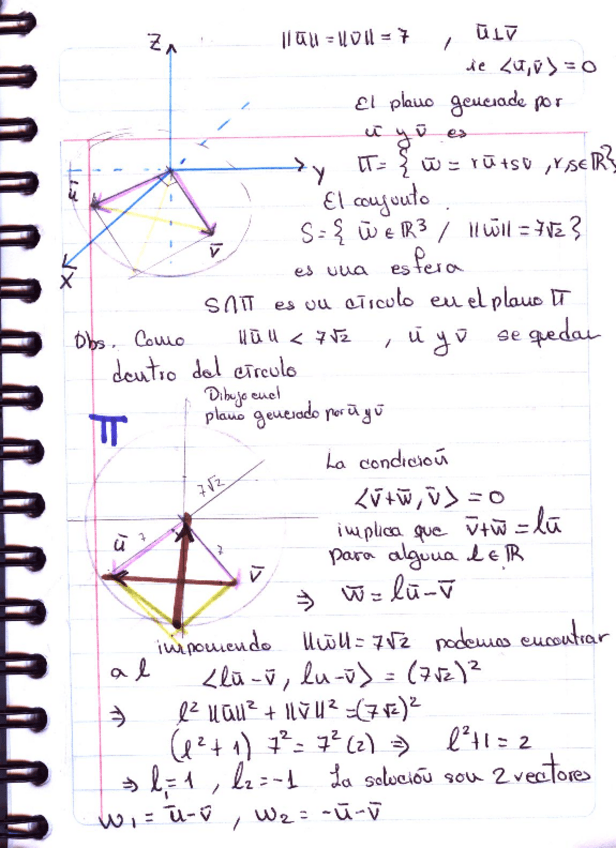 Z
||ū|| = ||v̄|| = 7 , ū⊥v̄
ie <ū,v̄> = 0
El plano generade por
ū y v̄ es
Y
Π = { w̄ = rū+sv , r,s∈ℝ}
ū
El conjunto.
v̄
S = { w̄ ∈ ℝ³ / ||w̄|| = 7√2 }
X
es una esfera
S∩Π es un círculo en el plano Π
Obs. Como ||ū|| < 7√2 , ū y v̄ se quedan
dentro del círculo
Dibujo en el
plano generado por ū y v̄
Π
La condición
7√2
<v̄+w̄, v̄> = 0
implica que v̄+w̄ = lū
ū 7 7 v̄
para alguna l ∈ ℝ
⇒ w̄ = lū-v̄
imponiendo ||w̄|| = 7√2 podemos encontrar
a l <lū-v̄, lu-v̄> = (7√2)²
⇒ l²||ū||² + ||v̄||² = (7√2)²
(l²+1) 7² = 7² (2) ⇒ l²+1 = 2
⇒ l₁=1 , l₂=-1 La solución son 2 vectores
w₁ = ū-v̄ , w₂ = -ū-v̄